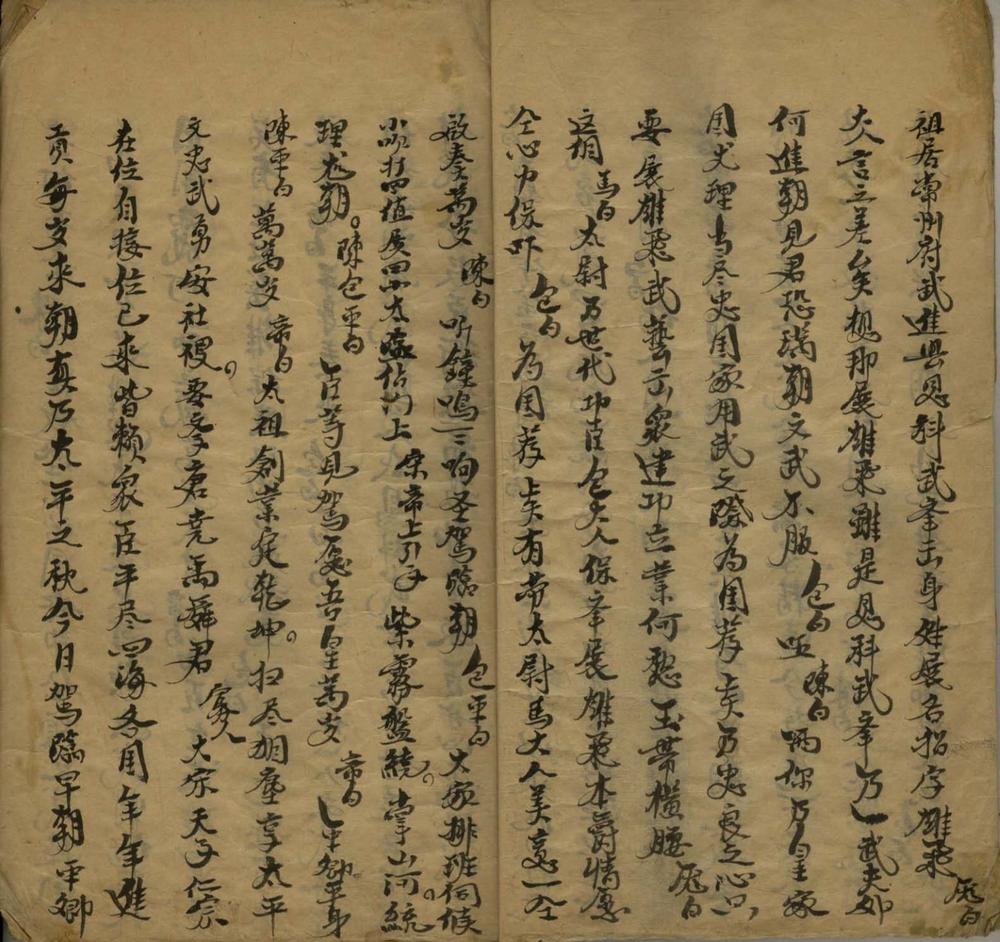 祖居常州府武進县恩科武举出身姓展名指字雄飛 厐白
大人言之差矣想那展雄飛雖是恩科武举乃一武夫如
何進朝見君恐满朝文武不服 包白 陳白 啊你乃皇家
国戈理当尽忠国家用武之際為国荐贤乃忠良之心只
要展雄飛武藝出衆建功立業何愁玉带横腰 厐白
这相 馬白 太尉乃世代功臣包大人保举展雄飛本爵情愿
仝心力保吓 包白 為国荐贤有劳太尉馬大人美意一仝
啟奏萬岁 陳白 听鐘鳴三响圣駕臨朝 包平白 大家排班伺候
小吹打四值殿四小太監佔门上 宋帝上引子 紫霧盤繞。掌山河。統
理龙朝。 陳包平白 臣等見駕愿吾皇萬岁 帝白 卿平身
陳平白 萬萬岁 帝白 太祖創業定乾坤。扫尽烟塵享太平
文忠武勇安社稷。要学唐尭禹舜君 寡人 大宋天子仁宗
在位自接位已来皆赖衆臣平尽四海各国年年進
貢每岁来朝真乃太平之秋今日駕臨早朝平卿